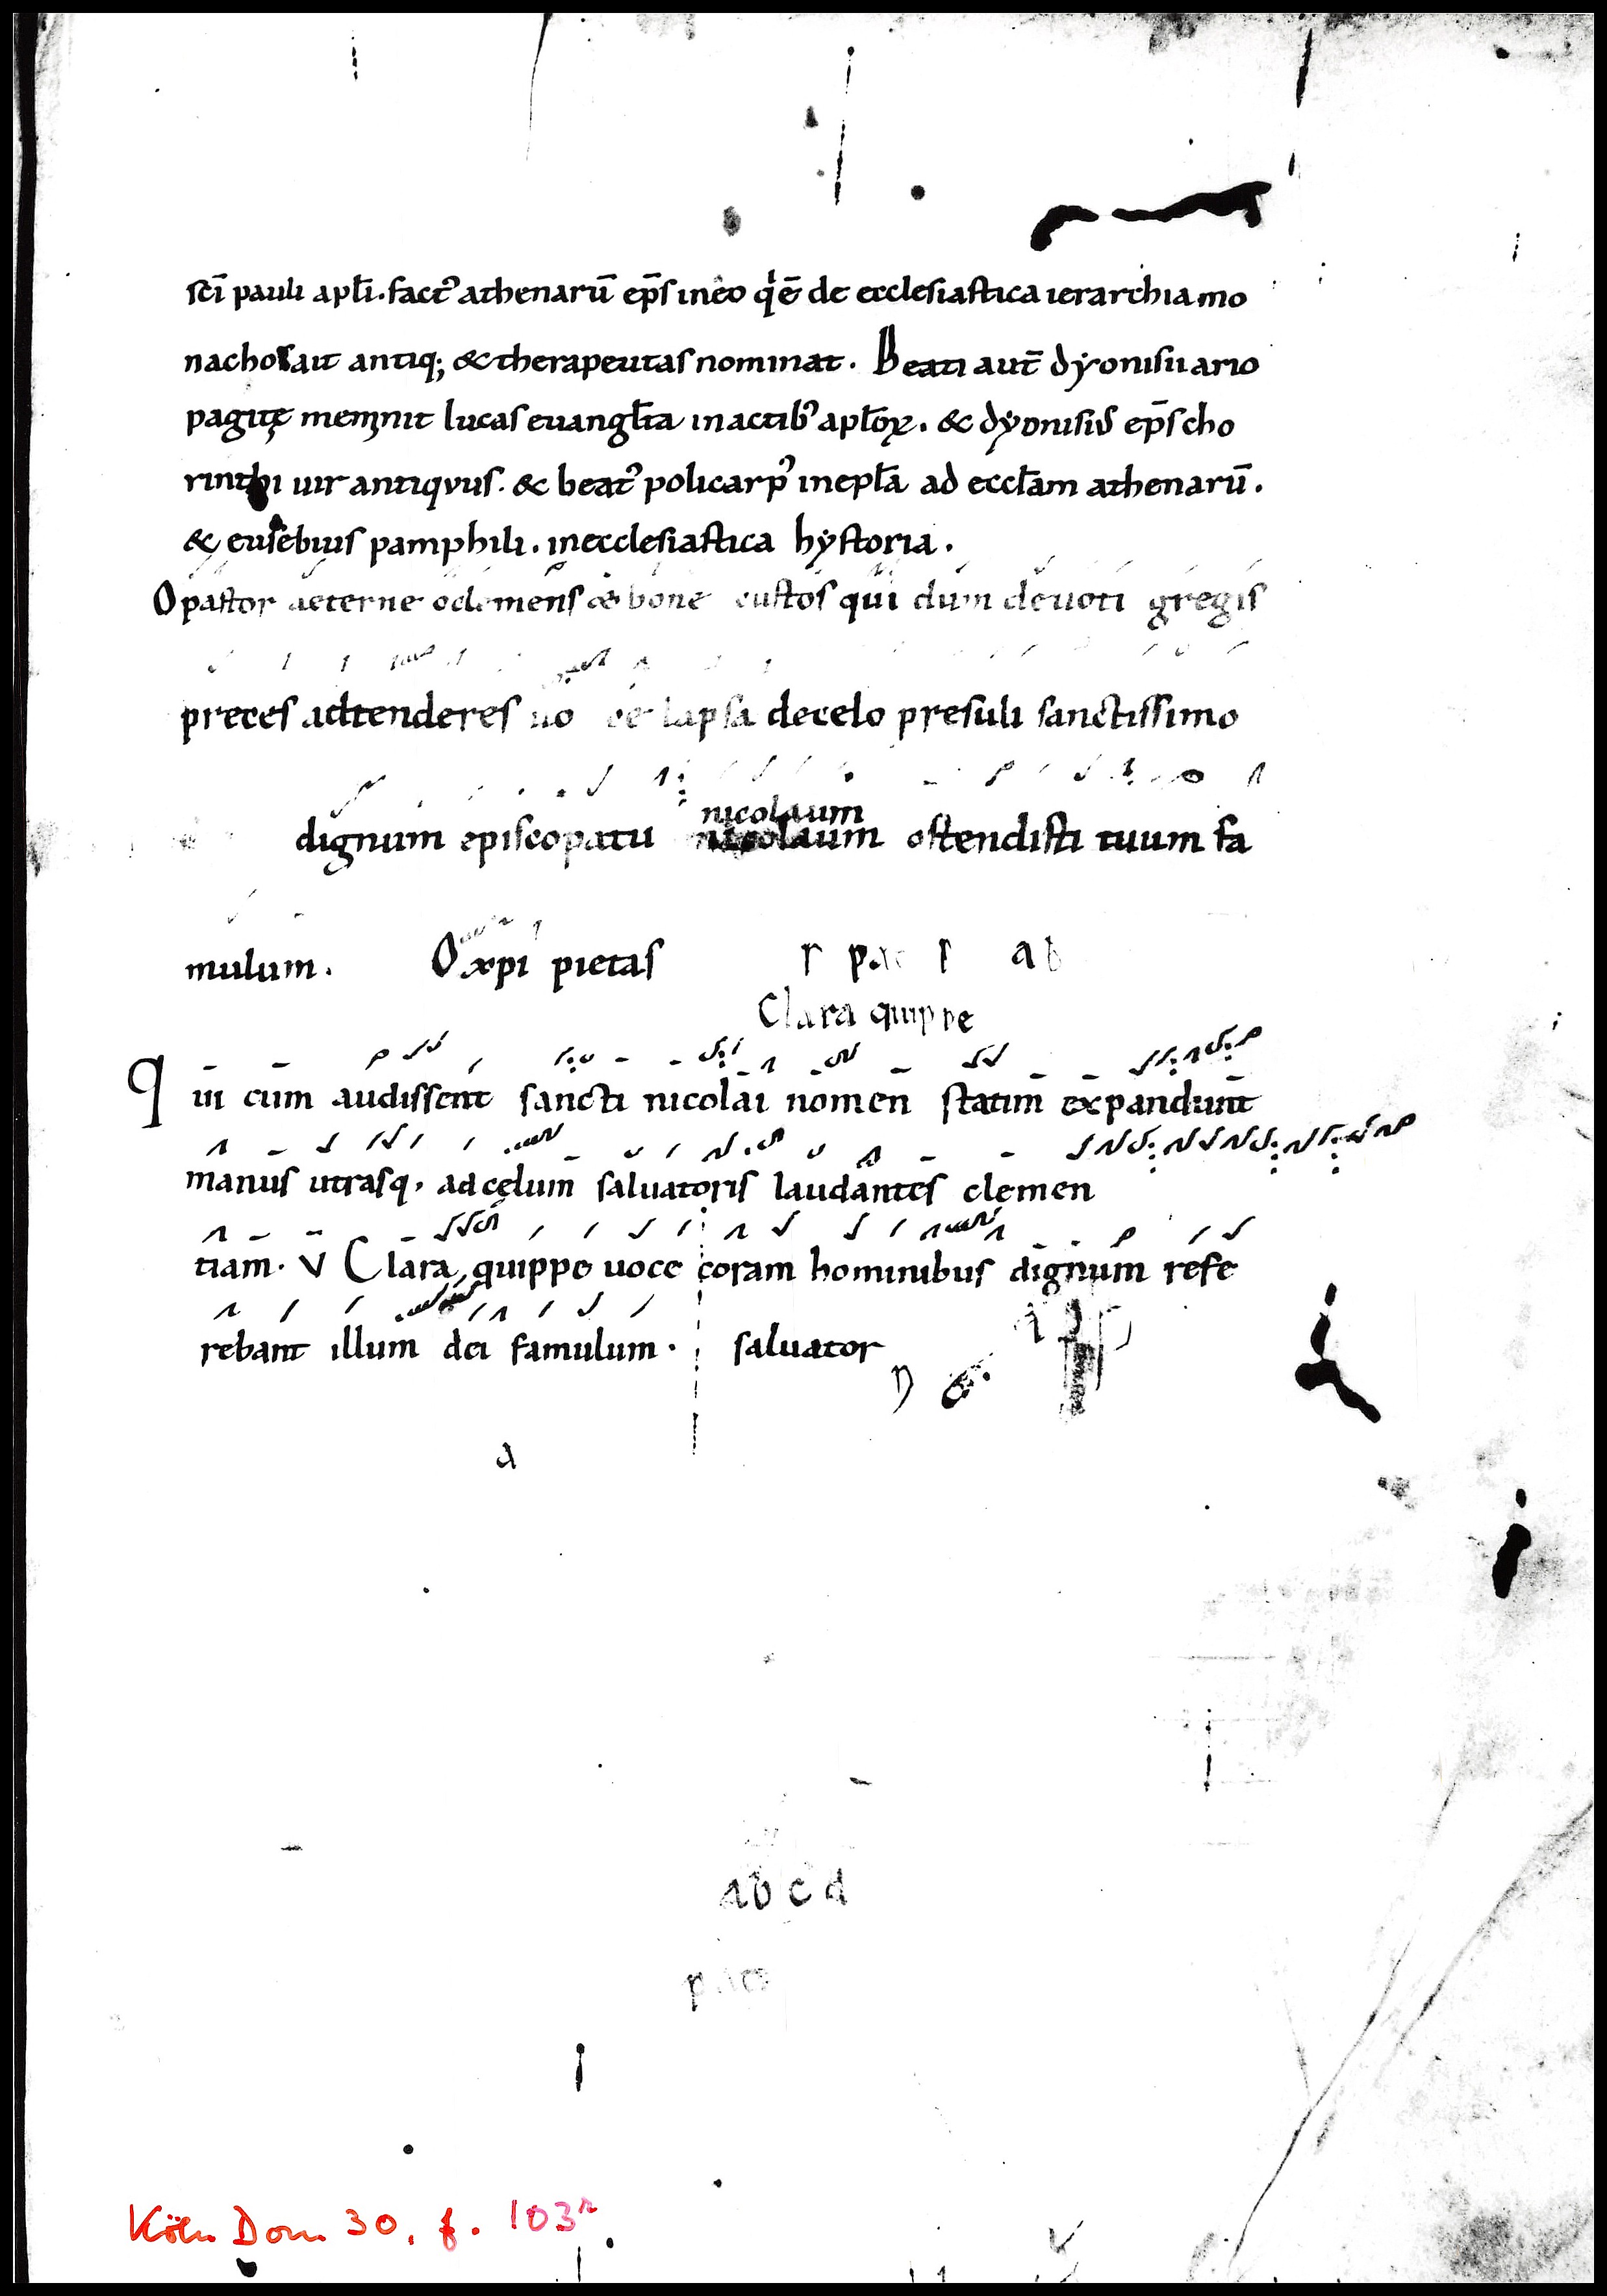 sc̄i pauli apl̄i. fact᾽ athenarū ep̄s in eo q̇ ē de ecclesiastica ierarchia mo
nachos ait antiq; & therapeutas nominat. Beati aut̄ dyonisii ario
pagitę meminit lucas euangl̄ta in actib᾽ apl̄oꝝ. & dyonisi᾽ ep̄s cho
rinthi uir antiquus. & beat᾽ policarp᾽ in epl̄a ad eccl̄am athenarū.
& eusebius pamphili. in ecclesiastica hystoria.
O pastor aeterne o clemens & bone custos qui dum deuoti gregis
preces adtenderes uo ce lapsa de celo presuli sanctissimo
nicolaum
dignum episcopatu nicolaum ostendisti tuum fa
mulum. O xpi pietas
Clara quippe
Qui cum audissent sancti nicolai nomen statim expandunt
manus utrasq, ad cęlum saluatoris laudantes clemen
tiam. v Clara quippe uoce coram hominibus dignum refe
rebant illum dei famulum. saluator
a
a b c d
Köln Dom 30, f. 103r